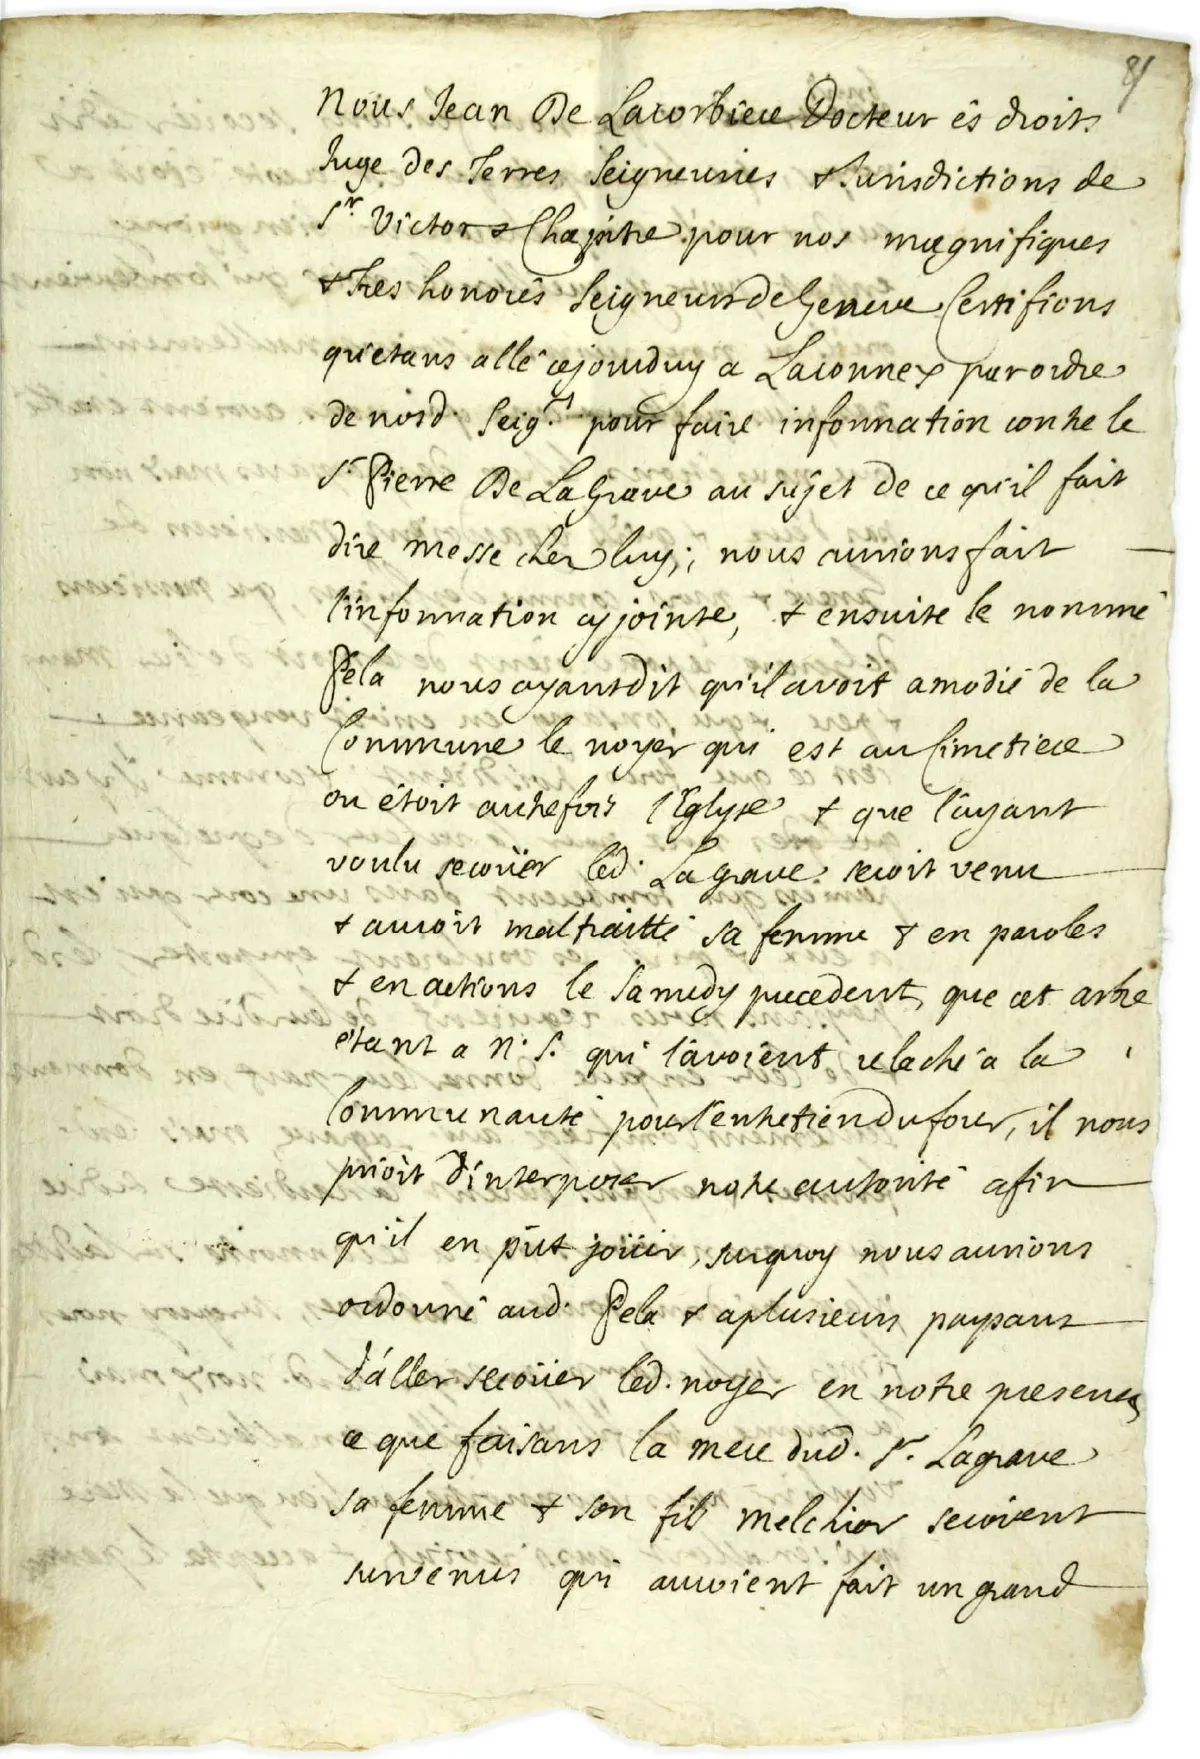 Nous Jean De Lacorbiere Docteur ês droits
Juge des Terres Seigneuries & Jurisdictions de
St. Victor & Chapitre pour nos magnifiques
& Tres honorés Seigneurs de Geneve Certifions
qu'etans allé cejourduy a Laconnex par ordre
de nosd. Seigrs. pour faire information contre le
Sr Pierre De La Grave au sujet de ce qu'il fait
dire messe chez luy; nous aurions fait
l'information cy jointe, & ensuite le nommé
Pela nous ayant dit qu'il avoit amodié de la
Commune le noyer qui est au Cimetiere
ou êtoit autrefois l'Eglyse & que l'ayant
voulu secoüer led. Lagrave seroit venu
& auroit maltraitté sa femme & en paroles
& en actions le Samedy precedent, que cet arbre
étant a N. S. qui l'avoient relaché a la
Communauté pour l'entretien du four, il nous
prioit d'interposer notre autorité afin
qu'il en pût joüir, surquoy nous aurions
ordonné aud. Pela & a plusieurs paysans
d'aller secoüer led. noyer en notre presence
ce que faisans la mere dud. Sr. Lagrave
sa femme & son fils Melchior seroient
survenus qui auroient fait un grand